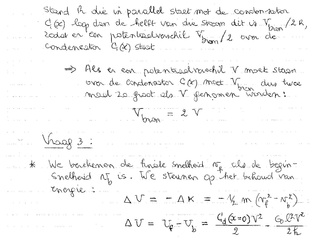 stand R die in parallel staat met de condensator
C(x) loopt dan de helft van die stroom dit is V_bron/2R,
zodat er een potentiaalverschil V_bron/2 over de
condensator C(x) staat
⇒ Als er een potentiaalverschil V moet staan
over de condensator C(x) moet V_bron dus twee
maal zo groot als V genomen worden:
V_bron = 2 V
Vraag 3:
* We berekenen de finale snelheid v_f als de begin-
snelheid v_b is. We steunen op het behoud van
energie:
ΔU = - ΔK = - ½ m (v_f² - v_b²)
ΔU = U_f - U_b =